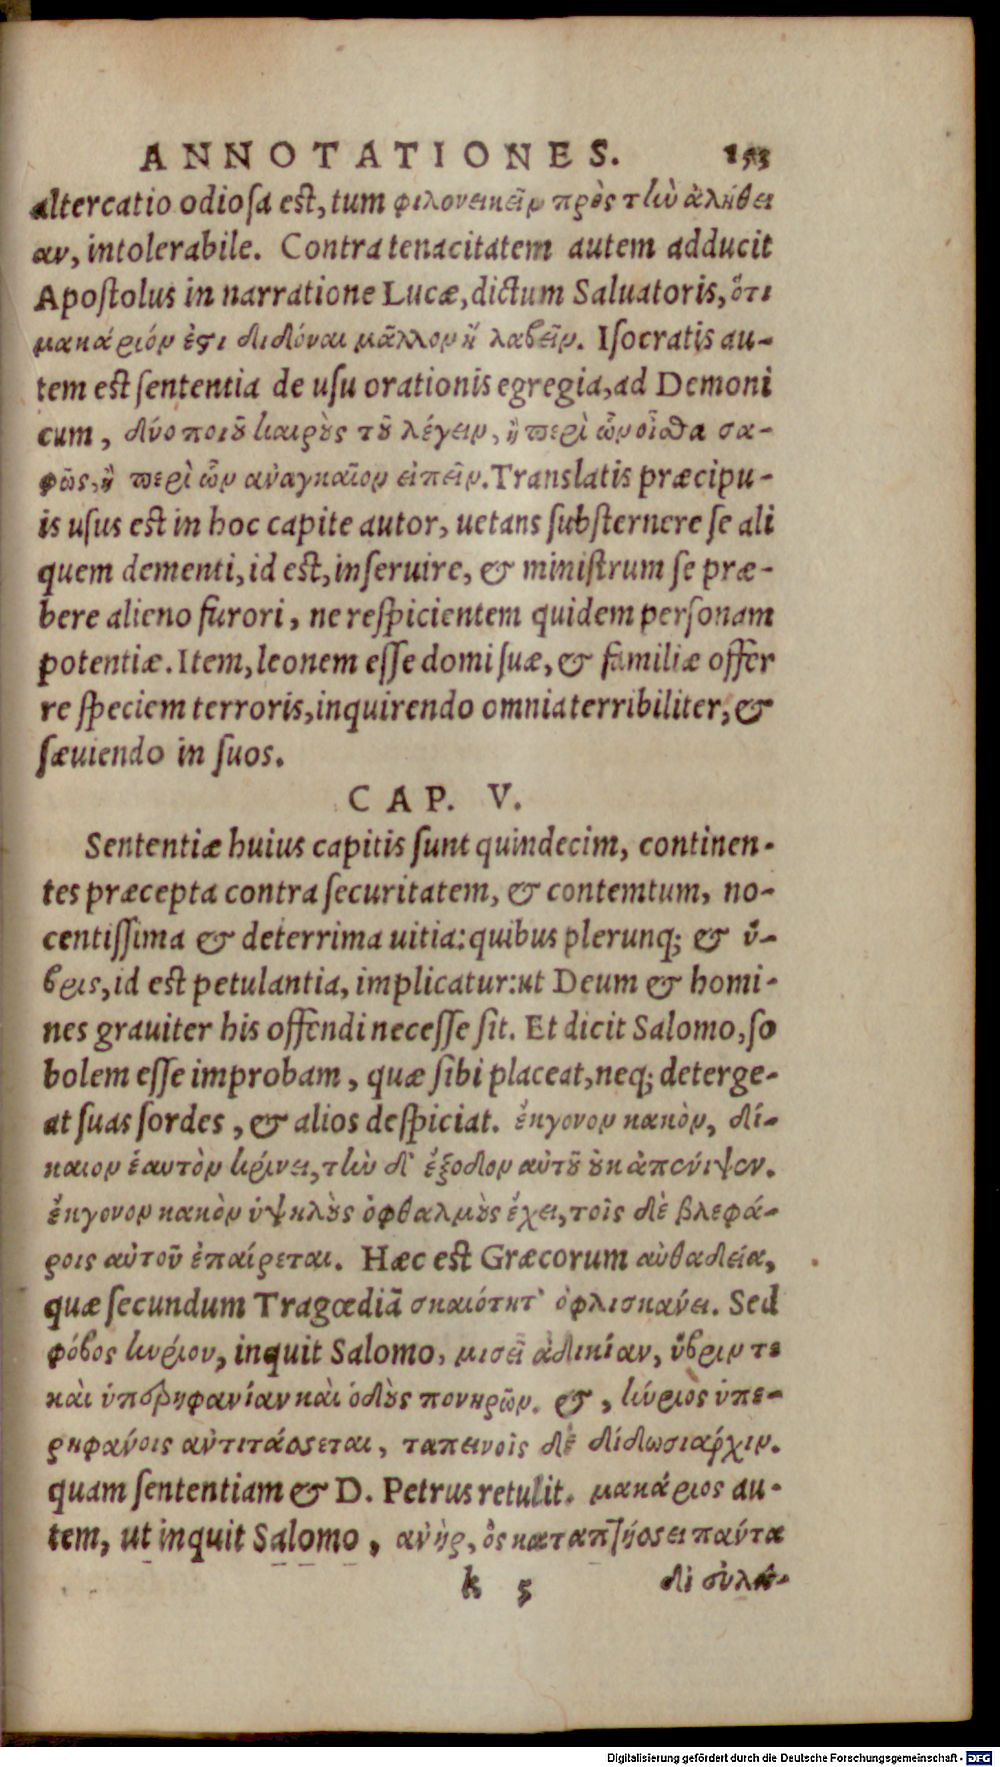 ANNOTATIONES. 153
altercatio odiosa est, tum φιλονεικεῖν πρὸς τὴν ἀλήθει
αν, intolerabile. Contra tenacitatem autem adducit
Apostolus in narratione Lucæ, dictum Saluatoris, ὅτι
μακάριόν ἐστι διδόναι μᾶλλον ἢ λαβεῖν. Isocratis au-
tem est sententia de usu orationis egregia, ad Demoni
cum, δύο ποιοῦ καιροὺς τοῦ λέγειν, ἢ περὶ ὧν οἶσθα σα-
φῶς, ἢ περὶ ὧν ἀναγκαῖον εἰπεῖν. Translatis præcipu-
is usus est in hoc capite autor, uetans substernere se ali
quem dementi, id est, inseruire, & ministrum se præ-
bere alieno furori, ne respicientem quidem personam
potentiæ. Item, leonem esse domi suæ, & familiæ offer
re speciem terroris, inquirendo omnia terribiliter, &
sæuiendo in suos.
CAP. V.
Sententiæ huius capitis sunt quindecim, continen-
tes præcepta contra securitatem, & contemtum, no-
centissima & deterrima uitia: quibus plerunq; & ὕ-
βρις, id est petulantia, implicatur: ut Deum & homi-
nes grauiter his offendi necesse sit. Et dicit Salomo, so
bolem esse improbam, quæ sibi placeat, neq; deterge-
at suas sordes, & alios despiciat. ἔκγονον κακὸν, δί-
καιον ἑαυτὸν κρίνει, τὴν δ' ἔξοδον αὐτοῦ οὐκ ἀπένιψεν.
ἔκγονον κακὸν ὑψηλοὺς ὀφθαλμοὺς ἔχει, τοῖς δὲ βλεφά-
ροις αὐτοῦ ἐπαίρεται. Hæc est Græcorum αὐθαδεία,
quæ secundum Tragœdiã σκαιότητ' ὀφλισκάνει. Sed
φόβος κυρίου, inquit Salomo, μισεῖ ἀδικίαν, ὕβριν τε
καὶ ὑπερηφανίαν καὶ ὁδοὺς πονηρῶν. &, κύριος ὑπε-
ρηφάνοις ἀντιτάσσεται, ταπεινοῖς δὲ δίδωσι χάριν.
quam sententiam & D. Petrus retulit. μακάριος au-
tem, ut inquit Salomo, ἀνὴρ, ὃς καταπτήσσει πάντα
k 5 δι' εὐλά-
Digitalisierung gefördert durch die Deutsche Forschungsgemeinschaft - DFG